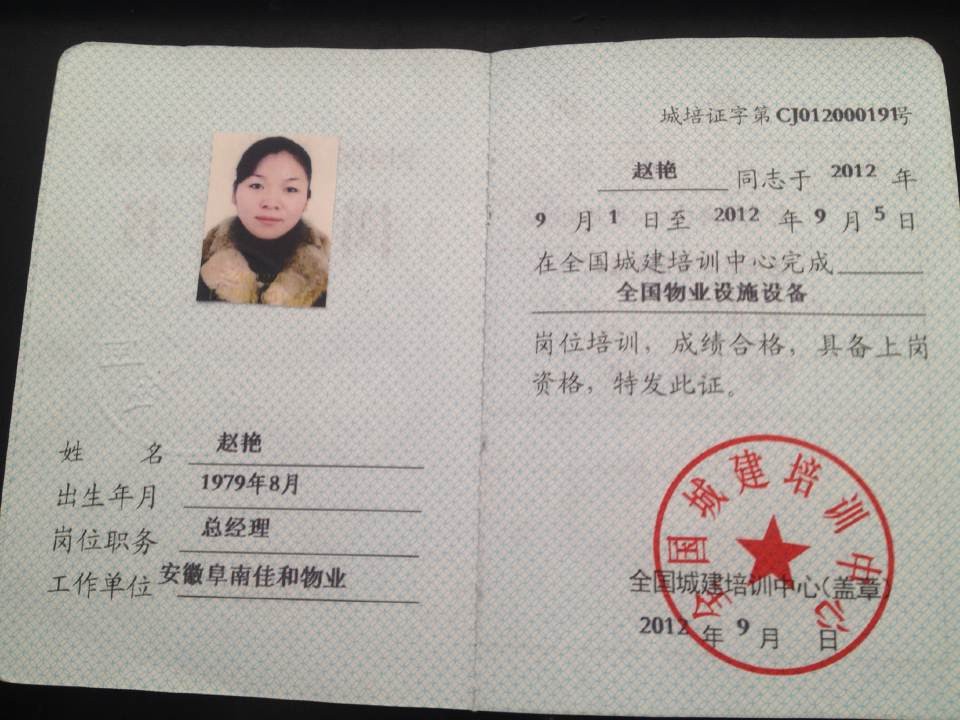 姓 名 赵艳
出生年月 1979年8月
岗位职务 总经理
工作单位 安徽阜南佳和物业
城培证字第CJ012000191号
赵艳 同志于 2012 年
9 月 1 日至 2012 年 9 月 5 日
在全国城建培训中心完成
全国物业设施设备
岗位培训，成绩合格，具备上岗
资格，特发此证。
全国城建培训中心
全国城建培训中心（盖章）
2012 年 9 月 日